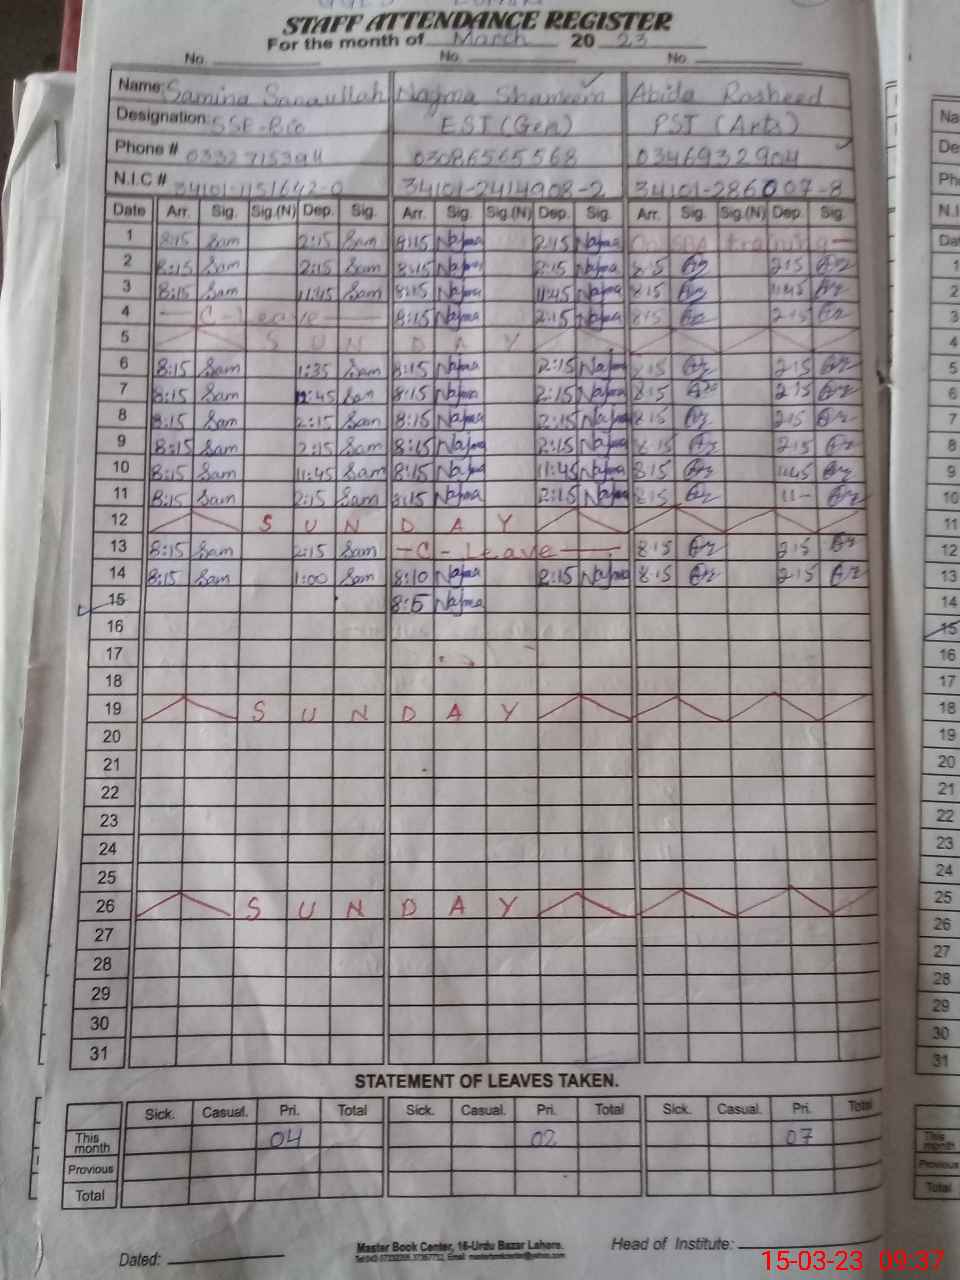 STAFF ATTENDANCE REGISTER
For the month of March 2023
No. No. No.
Name: Samina Sanaullah Najma Shameem Abida Rasheed
Designation: SSE-Bio EST (Gen) PST (Arts)
Phone # 03086565568 03469932904
N.I.C # 34101-1151642-0 34101-2414908-2 34101-286007-8
Date Arr. Sig. Sig.(N) Dep. Sig. Arr. Sig. Sig.(N) Dep. Sig. Arr. Sig. Sig.(N) Dep. Sig.
1 8:15 Sam 2:15 Sam 8:15 Najma 2:15 Najma On SBA training
2 8:15 Sam 2:15 Sam 8:15 Najma 2:15 Najma 8:15 2:15
3 8:15 Sam 11:45 Sam 8:15 Najma 11:45 Najma 8:15 11:45
4 C-Leave 8:15 Najma 2:15 Najma 8:15 2:15
5 S U N D A Y
6 8:15 Sam 1:35 Sam 8:15 Najma 2:15 Najma 8:15 2:15
7 8:15 Sam :45 Sam 8:15 Najma 2:15 Najma 8:15 2:15
8 8:15 Sam 2:15 Sam 8:15 Najma 2:15 Najma 8:15 2:15
9 8:15 Sam 2:15 Sam 8:15 Najma 2:15 Najma 8:15 2:15
10 8:15 Sam 11:45 Sam 8:15 Najma 11:45 Najma 8:15 11:45
11 8:15 Sam 2:15 Sam 8:15 Najma 2:15 Najma 8:15 11-
12 S U N D A Y
13 8:15 Sam 2:15 Sam -C-Leave- 8:15 2:15
14 8:15 Sam 1:00 Sam 8:10 Najma 2:15 Najma 8:15 2:15
15 8:5 Najma
16
17
18
19 S U N D A Y
20
21
22
23
24
25
26 S U N D A Y
27
28
29
30
31
STATEMENT OF LEAVES TAKEN.
Sick. Casual. Pri. Total Sick. Casual. Pri. Total Sick. Casual. Pri. Total
This month 04 02 07
Previous
Total
Master Book Center, 16-Urdu Bazar Lahore.
Dated: Head of Institute:
15-03-23 09:37
Na
De
Ph
N.I
Da
1
2
3
4
5
6
7
8
9
10
11
12
13
14
15
16
17
18
19
20
21
22
23
24
25
26
27
28
29
30
31
This month
Previous
Total